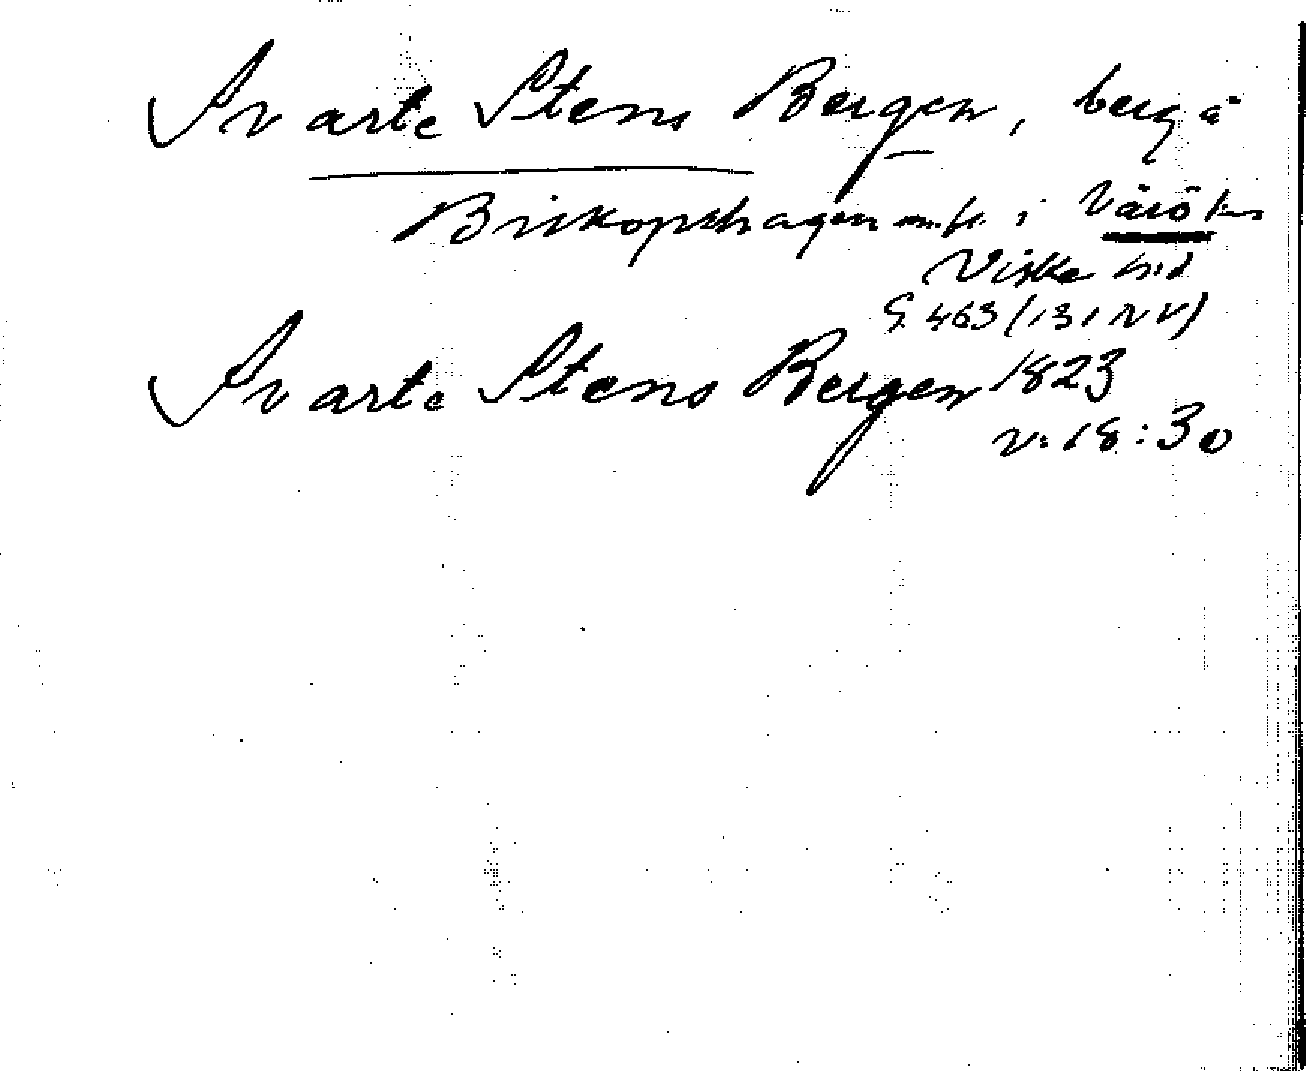 Svarte Stens Bergen, berg å
Biskopshagen i Värö
Viske hrd
G. 463 (131 NV)
Svarte Stens Bergen 1823
v. 18:30